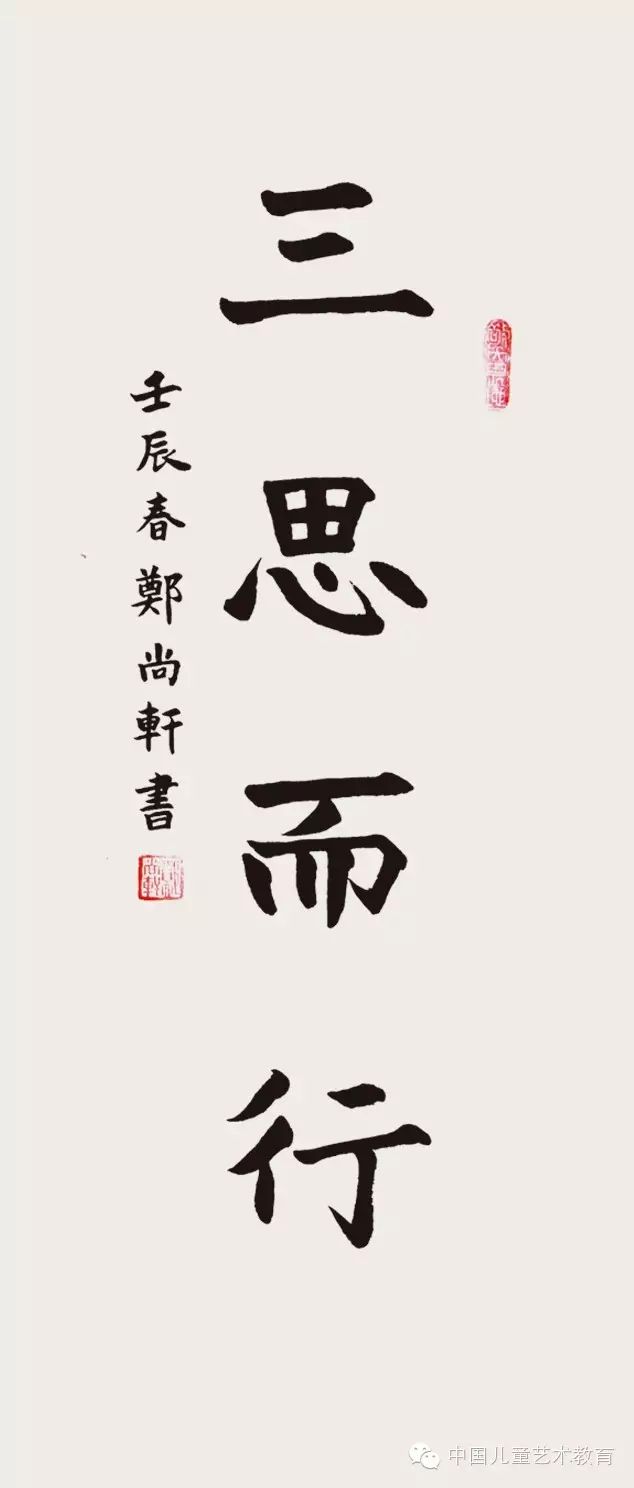 三思而行
壬辰春鄭尚軒書
中国儿童艺术教育